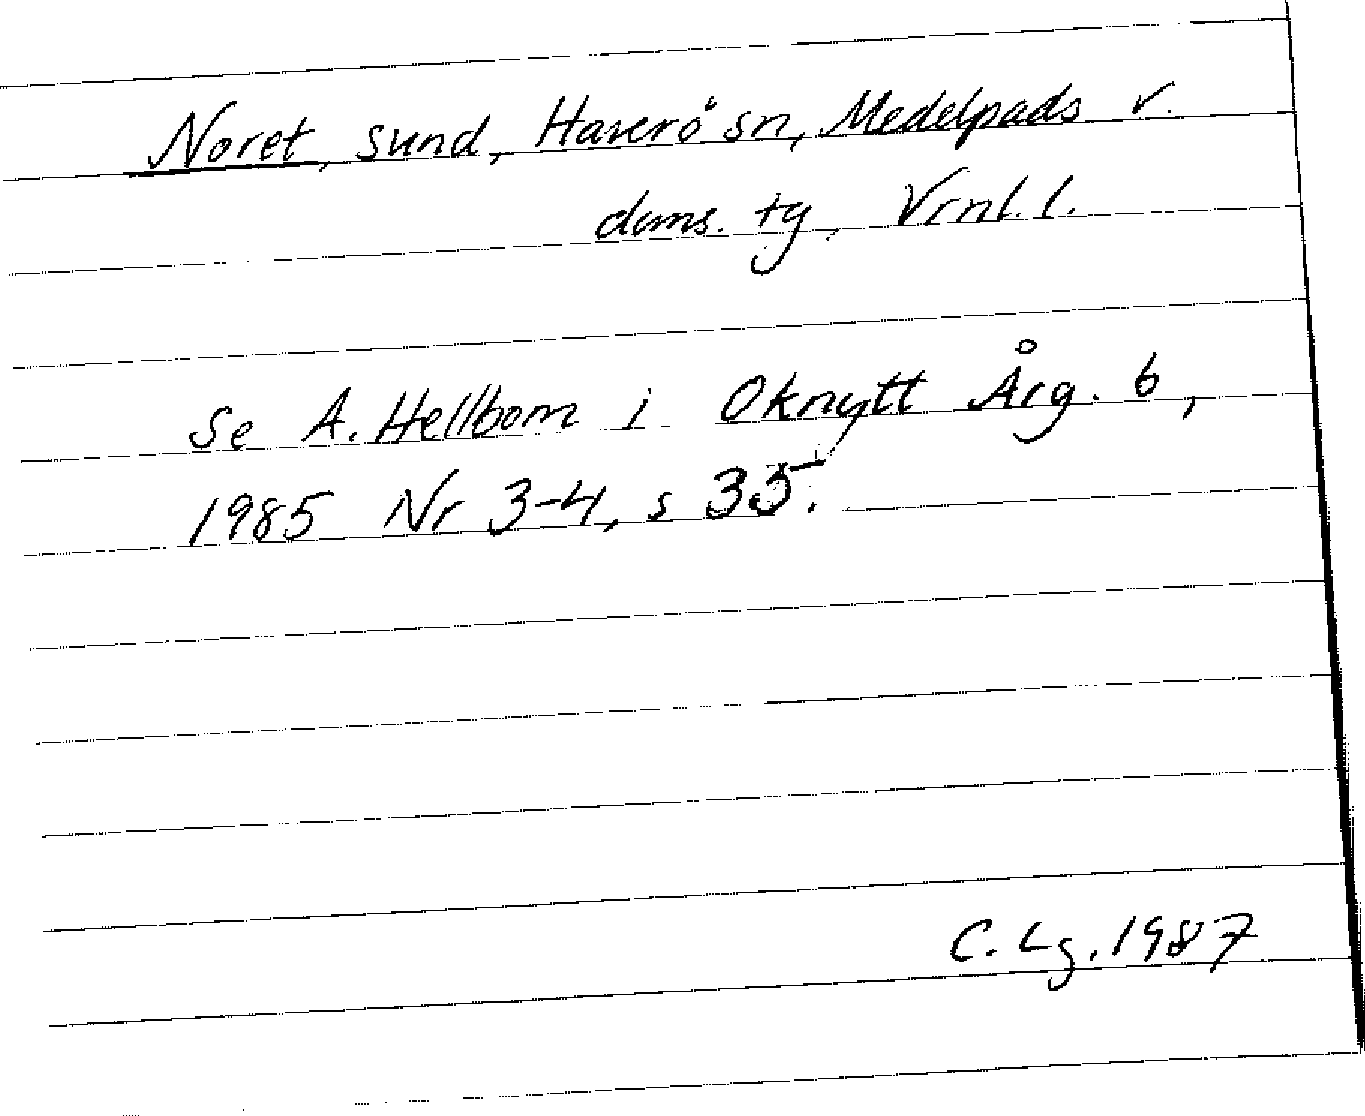 Noret, sund, Haverö sn, Medelpads v.
doms. tg, Vrnl. l.
Se A. Hellbom i Oknytt Årg. 6,
1985 Nr 3-4, s 35.
C. Lg. 1987